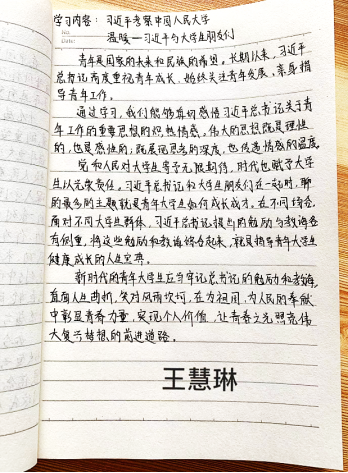 学习内容：习近平考察中国人民大学
No.
Date.
温暖—习近平与大学生朋友们
青年是国家的未来和民族的希望。长期以来，习近平
总书记高度重视青年成长，始终关注青年发展、亲身指
导青年工作。
通过学习，我们能够真切感悟习近平总书记关于青
年工作的重要思想的炽热情感。伟大的思想既是理性
的，也是感性的；既展现思想的深度，也传递情感的温度。
党和人民对大学生寄予无限期待，时代也赋予大学
生以无限责任。习近平总书记和大学生朋友们在一起时，聊
的最多的主题就是青年大学生如何成长成才。在不同场合，
面对不同大学生群体，习近平总书记提出的勉励与教诲各
有侧重，将这些勉励和教诲综合起来，就是指导青年大学生
健康成长的人生宝典。
新时代的青年大学生应当牢记总书记的勉励和教诲，
直面人生曲折，笑对风雨坎坷，在为祖国、为人民的奉献
中彰显青春力量，实现个人价值，让青春之光照亮伟
大复兴梦想的前进道路。
王慧琳